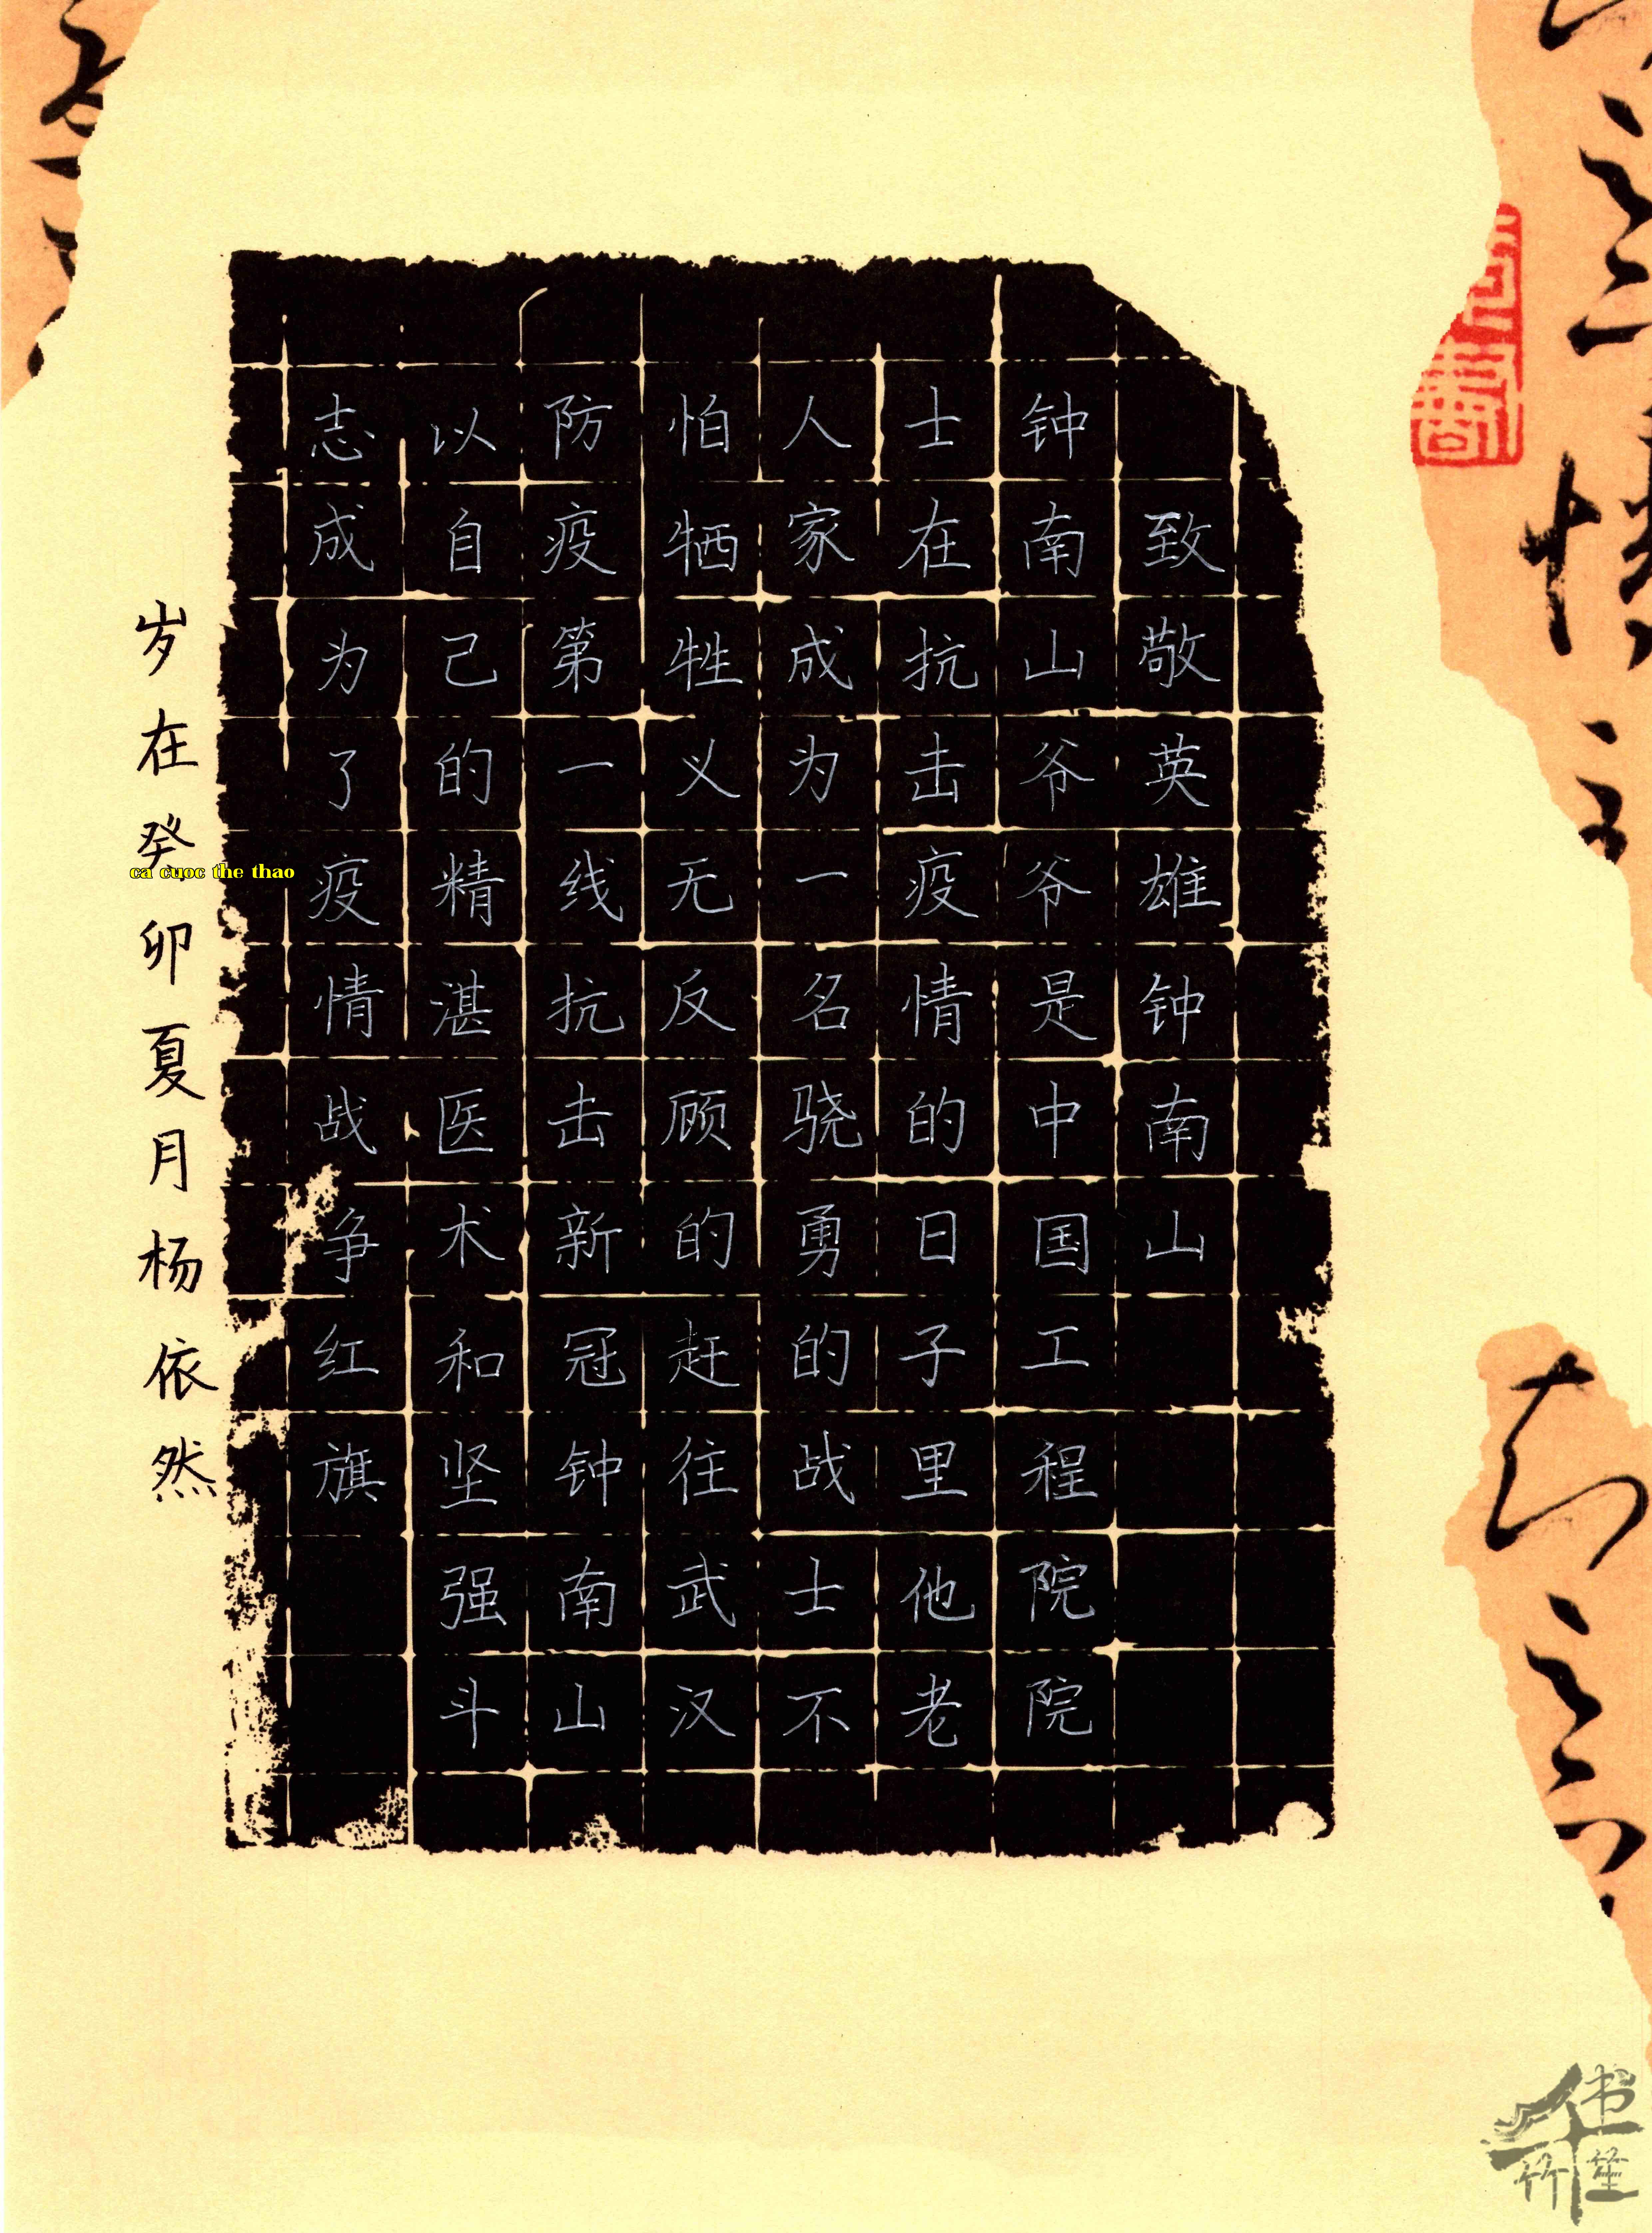 致敬英雄钟南山
钟南山爷爷是中国工程院院
士在抗击疫情的日子里他老
人家成为一名骁勇的战士不
怕牺牲义无反顾的赶往武汉
防疫第一线抗击新冠钟南山
以自己的精湛医术和坚强斗
志成为了疫情战争红旗
岁在癸卯夏月杨依然
ca cuoc the thao